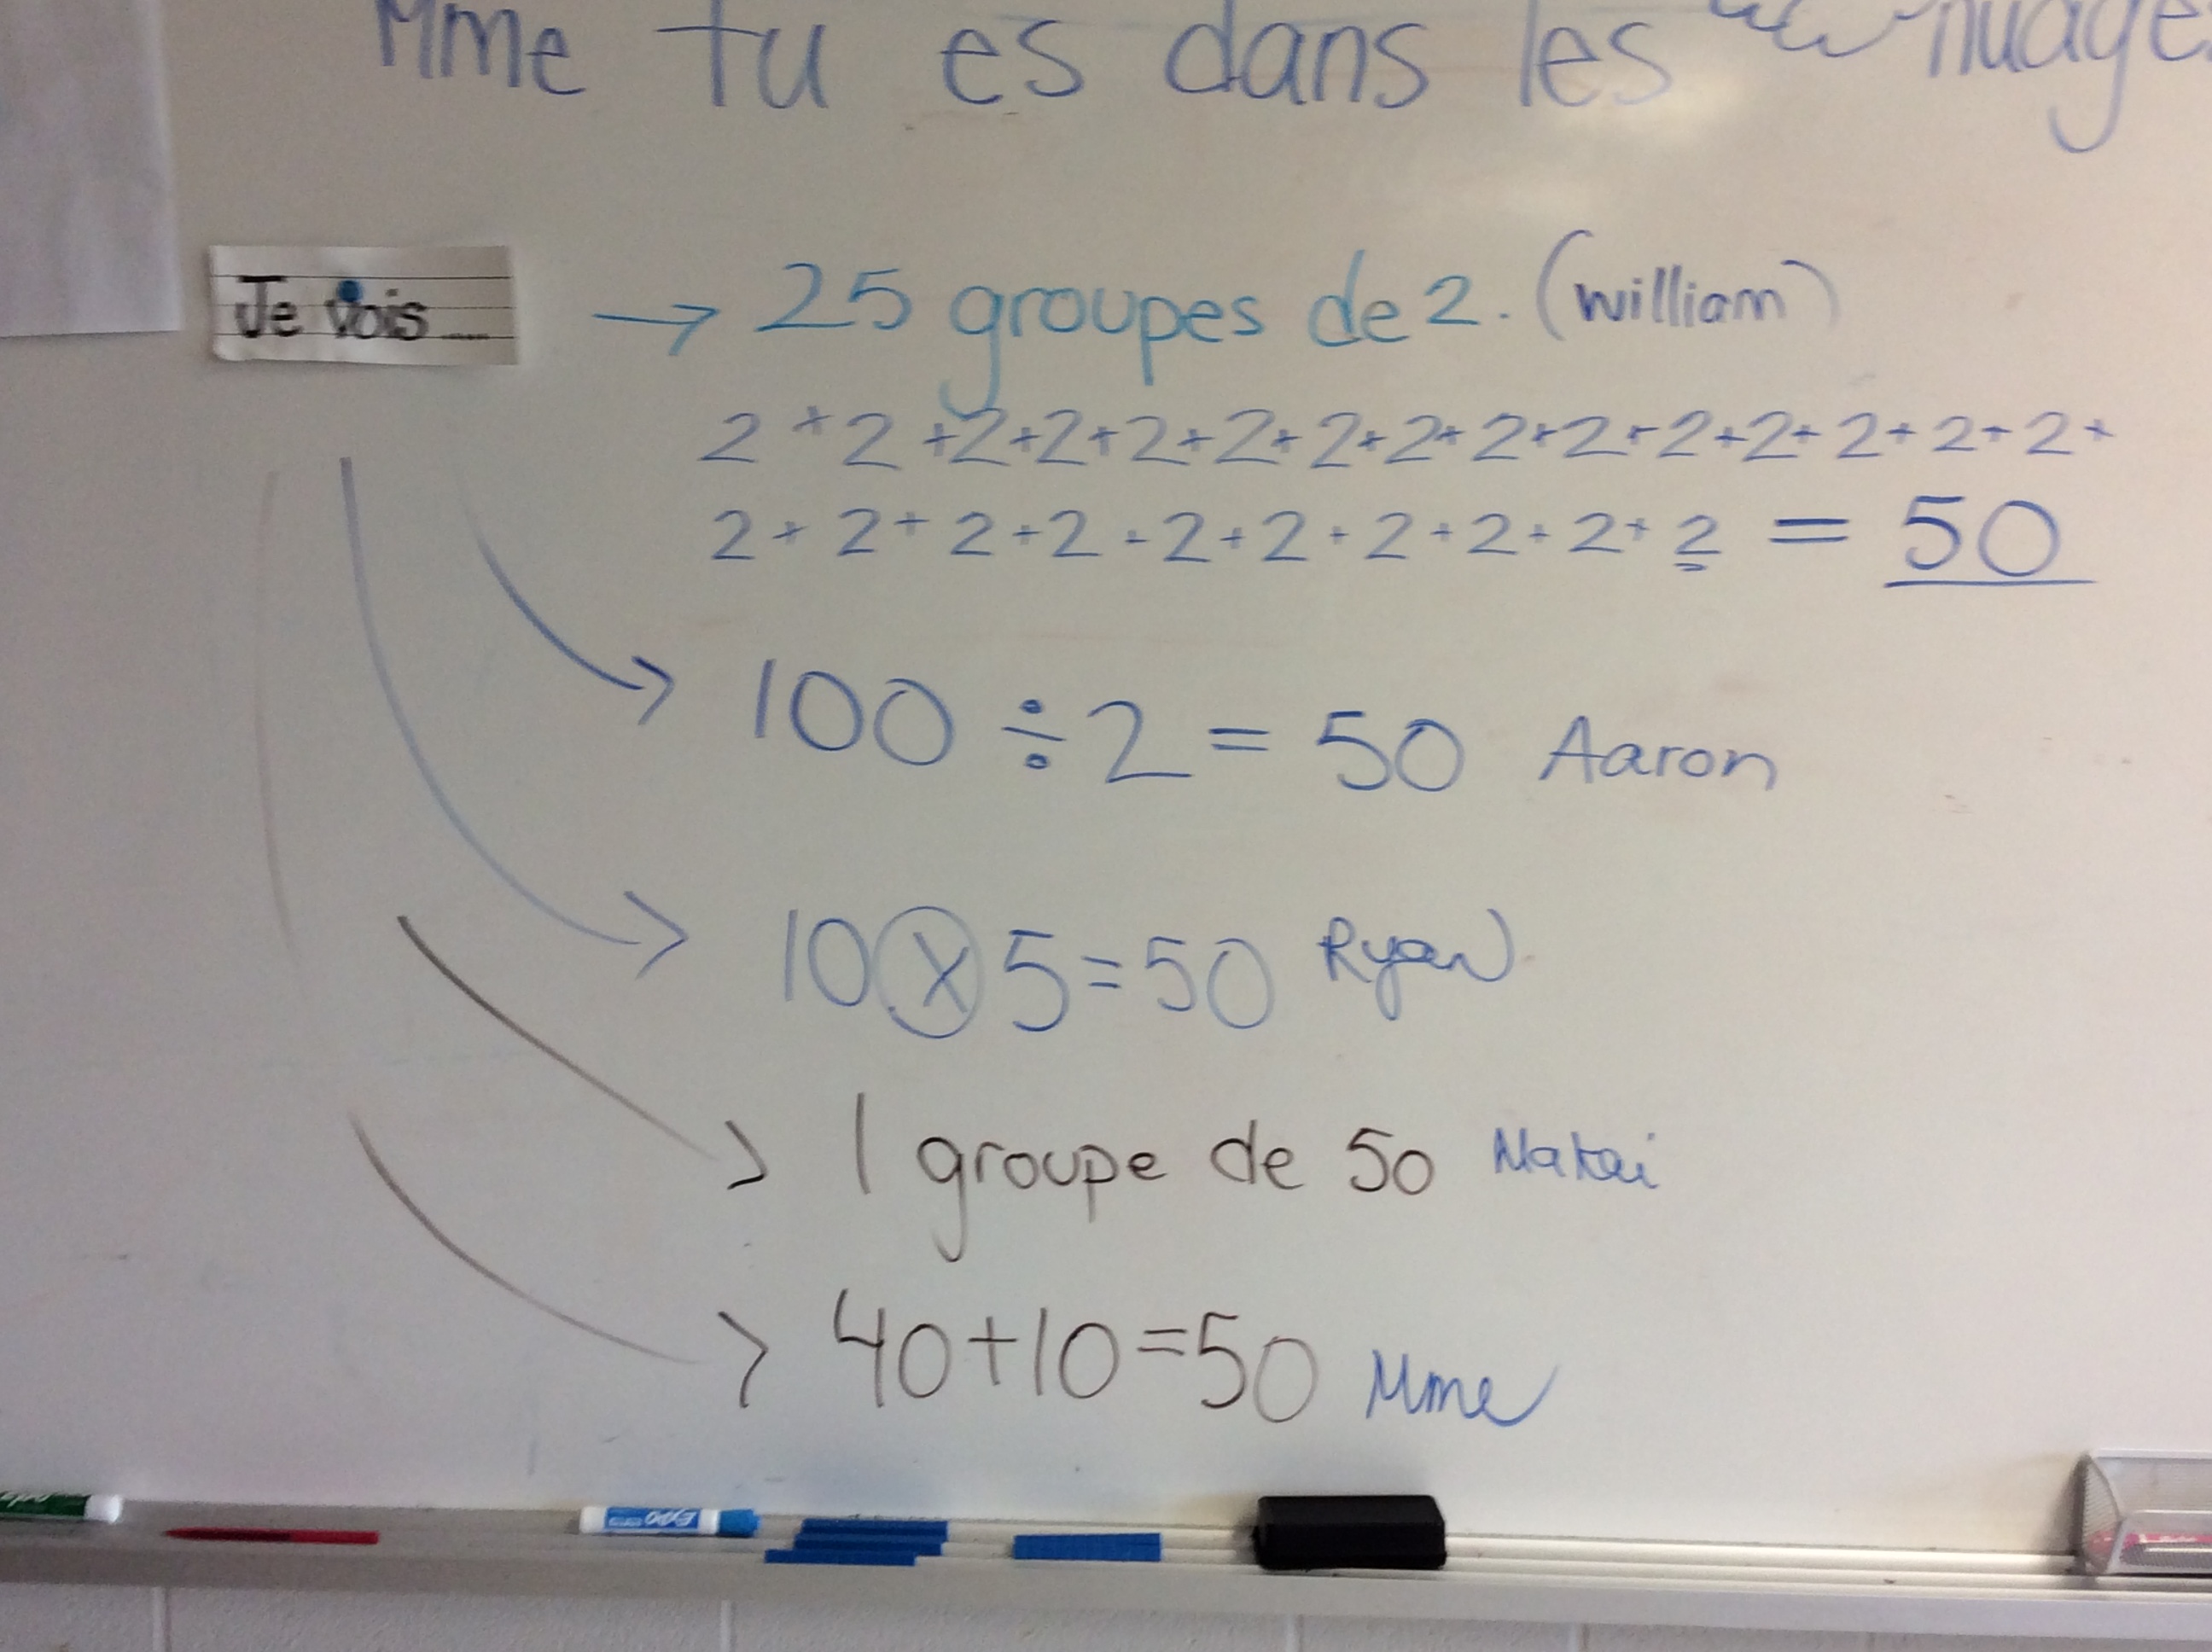 Mme tu es dans les nuage
Je vois ....
→ 25 groupes de 2. (William)
2 + 2 + 2 + 2 + 2 + 2 + 2 + 2 + 2 + 2 + 2 + 2 + 2 + 2 + 2 +
2 + 2 + 2 + 2 + 2 + 2 + 2 + 2 + 2 + 2 = 50
100 ÷ 2 = 50 Aaron
10 x 5 = 50 Ryan
1 groupe de 50 Makai
40+10=50 Mme
EXPO